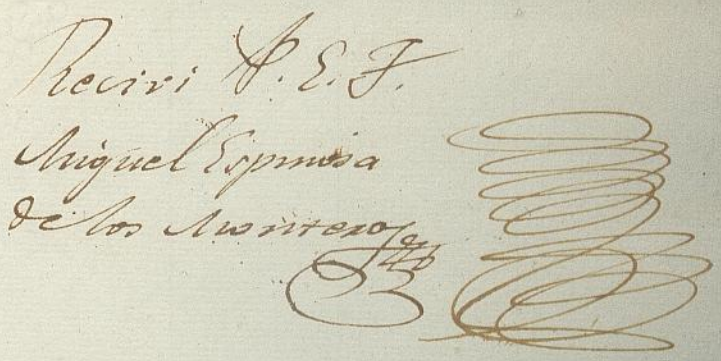 Recivi P. E. F.
Miguel Espinosa
de los Monteros